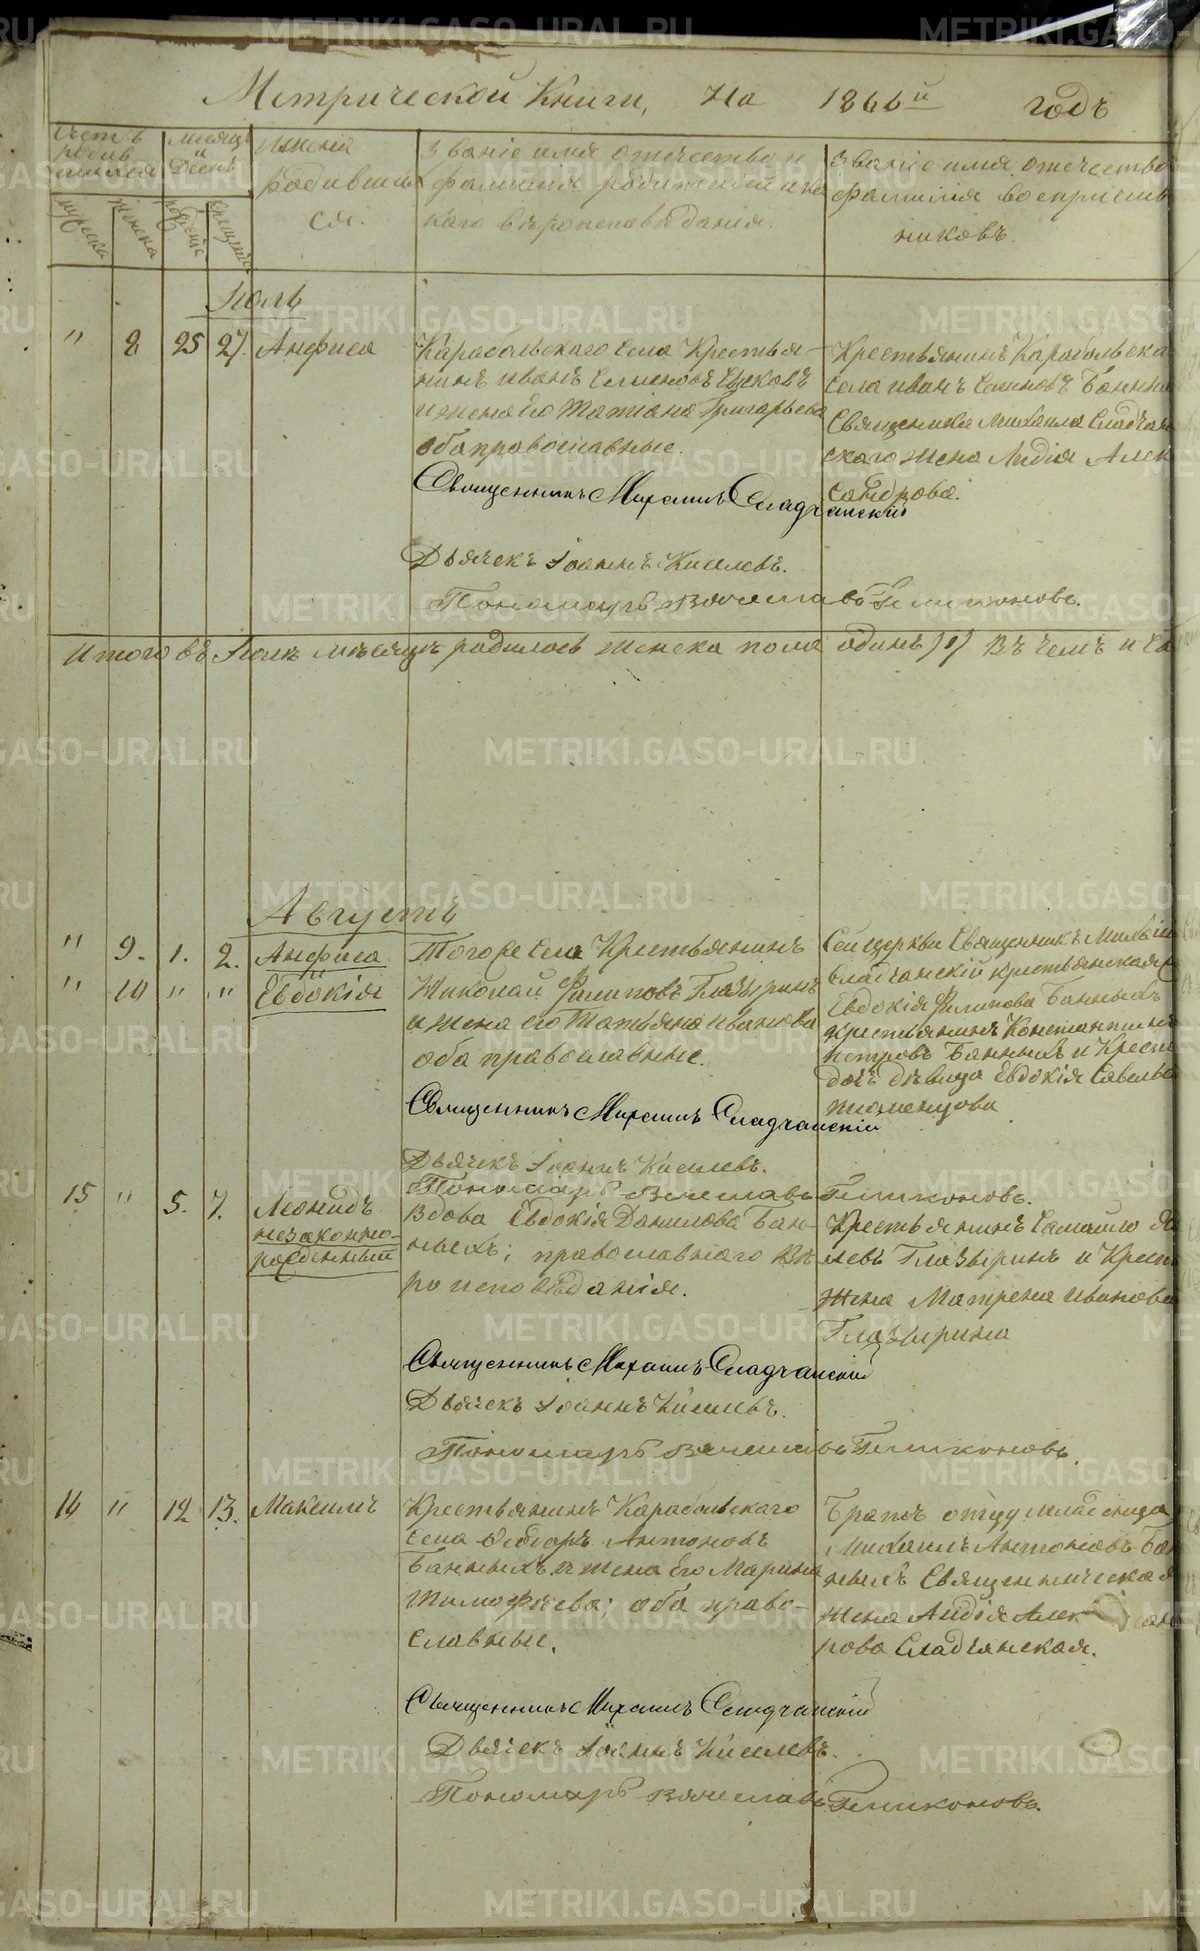 Метрической Книги, На 1866й годъ
Счетъ родившихся
Месяцъ и День
Имена родившихся.
Званіе имя отечество и фамилія родителей и какого вѣроисповѣданія.
Званіе имя, отечество фамилія воспріемниковъ.
мужеска
женска
рожденія
крещенія
Іюль
" 8 25 27. Анфиса
Карабольскаго Села Крестья-
нинъ Иванъ Семеновъ
и жена его Татіана Григорьева
оба православные.
Священникъ Михаилъ Сладчанскій
Дьячекъ Іоаннъ Киселевъ.
Пономарь Вячеславъ
Крестьянинъ Карабольска
Села Иванъ
Священника Михаила Сладчан
скаго жена Лидія Алек
сандрова.
Итого въ Іюлѣ мѣсяцѣ родилось женска пола одинъ) 1) Въ чемъ и
Августъ
" 9. 1. 2. Анфиса
" 10 " " Евдокія
Тогоже Села Крестьянинъ
Николай Филиповъ Глазыринъ
и жена его Татьяна Иванова
оба православные.
Священникъ Михаилъ Сладчанскій
Дьячекъ Іоаннъ Киселевъ.
Пономарь Вячеславъ
Сей церкви Священникъ Михаил
Сладчанскій крестьянская
Евдокія Филипова Банныхъ
крестьянинъ Константинъ
Петровъ Банныхъ и Крест
дочь дѣвица Евдокія Савельева
15 " 5. 7. Леонидъ
незаконно-
рожденный
Вдова Евдокія Данилова Бан-
ныхъ; православнаго вѣ-
роисповѣданія.
Крестьянинъ Самойло Яков
левъ Глазыринъ и Крест
жена Матрена Иванова
Глазырина
Священникъ Михаилъ Сладчанскій
Дьячекъ Іоаннъ Киселевъ.
Пономарь Вячеславъ
16 " 12 13. Максимъ
Крестьянинъ Карабольскаго
Села Ѳедоръ Антоновъ
Банныхъ и жена его Марина
Тимофѣева; оба право-
славные.
Братъ отцу младенца
Михаилъ Антоновъ Бан
ныхъ Священническая
жена Лидія Алек сан
рова Сладчанская.
Священникъ Михаилъ Сладчанскій
Дьячекъ Іоаннъ Киселевъ.
Пономарь Вячеславъ
METRIKI.GASO-URAL.RU